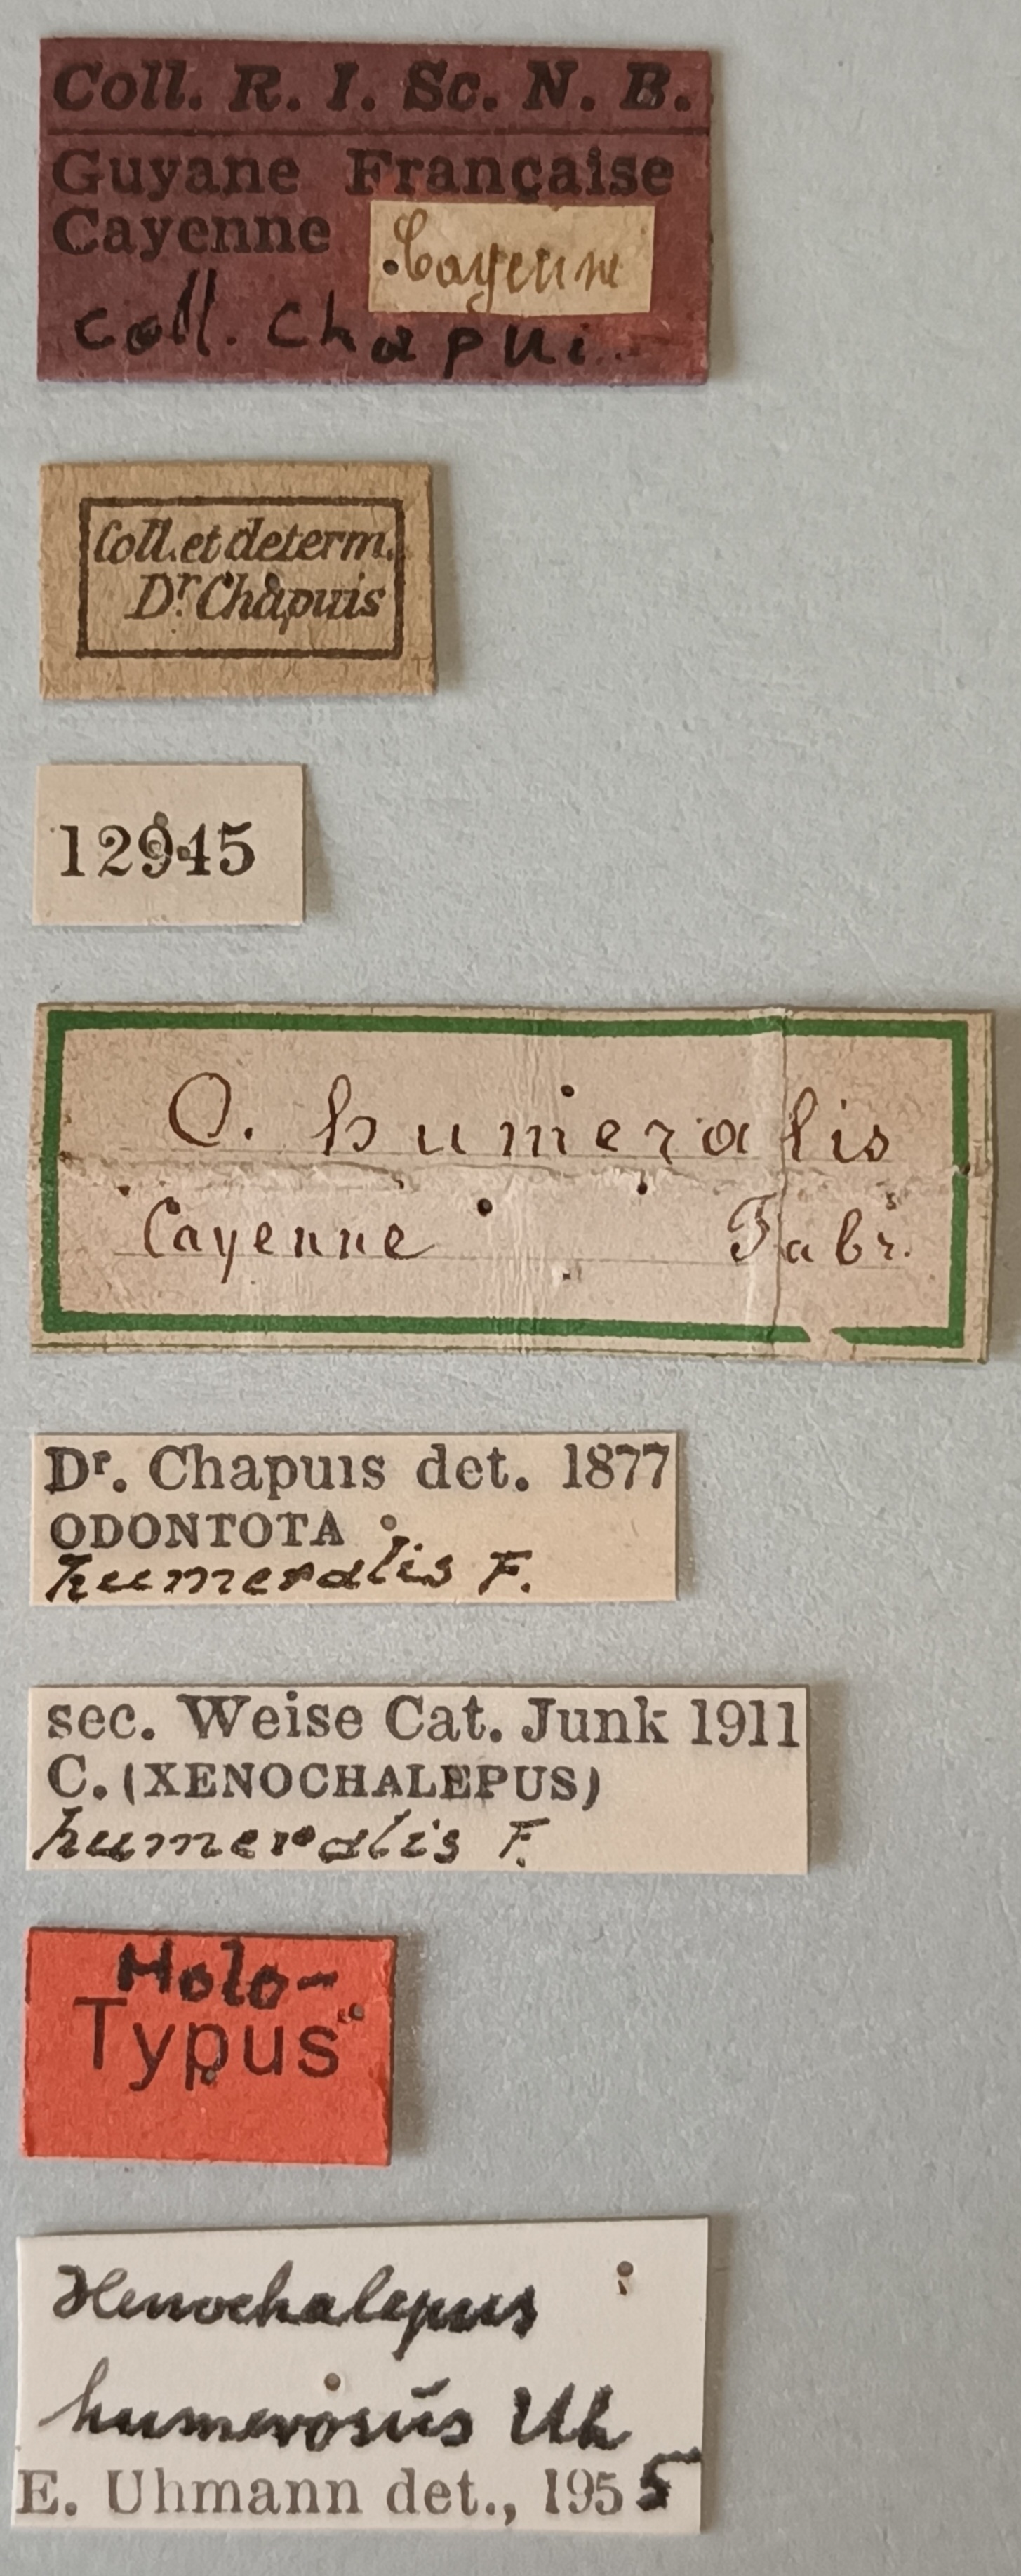 Coll. R. I. Sc. N. B.
Guyane Française
Cayenne
Cayenne
coll. Chapui
Coll. et determ.
Dr. Chapuis
12945
O. humeralis
Cayenne Fabr.
Dr. Chapuis det. 1877
ODONTOTA
humeralis F.
sec. Weise Cat. Junk 1911
C. (XENOCHALEPUS)
humeralis F.
Holo-
Typus
Xenochalepus
humerosus Uh
E. Uhmann det., 1955